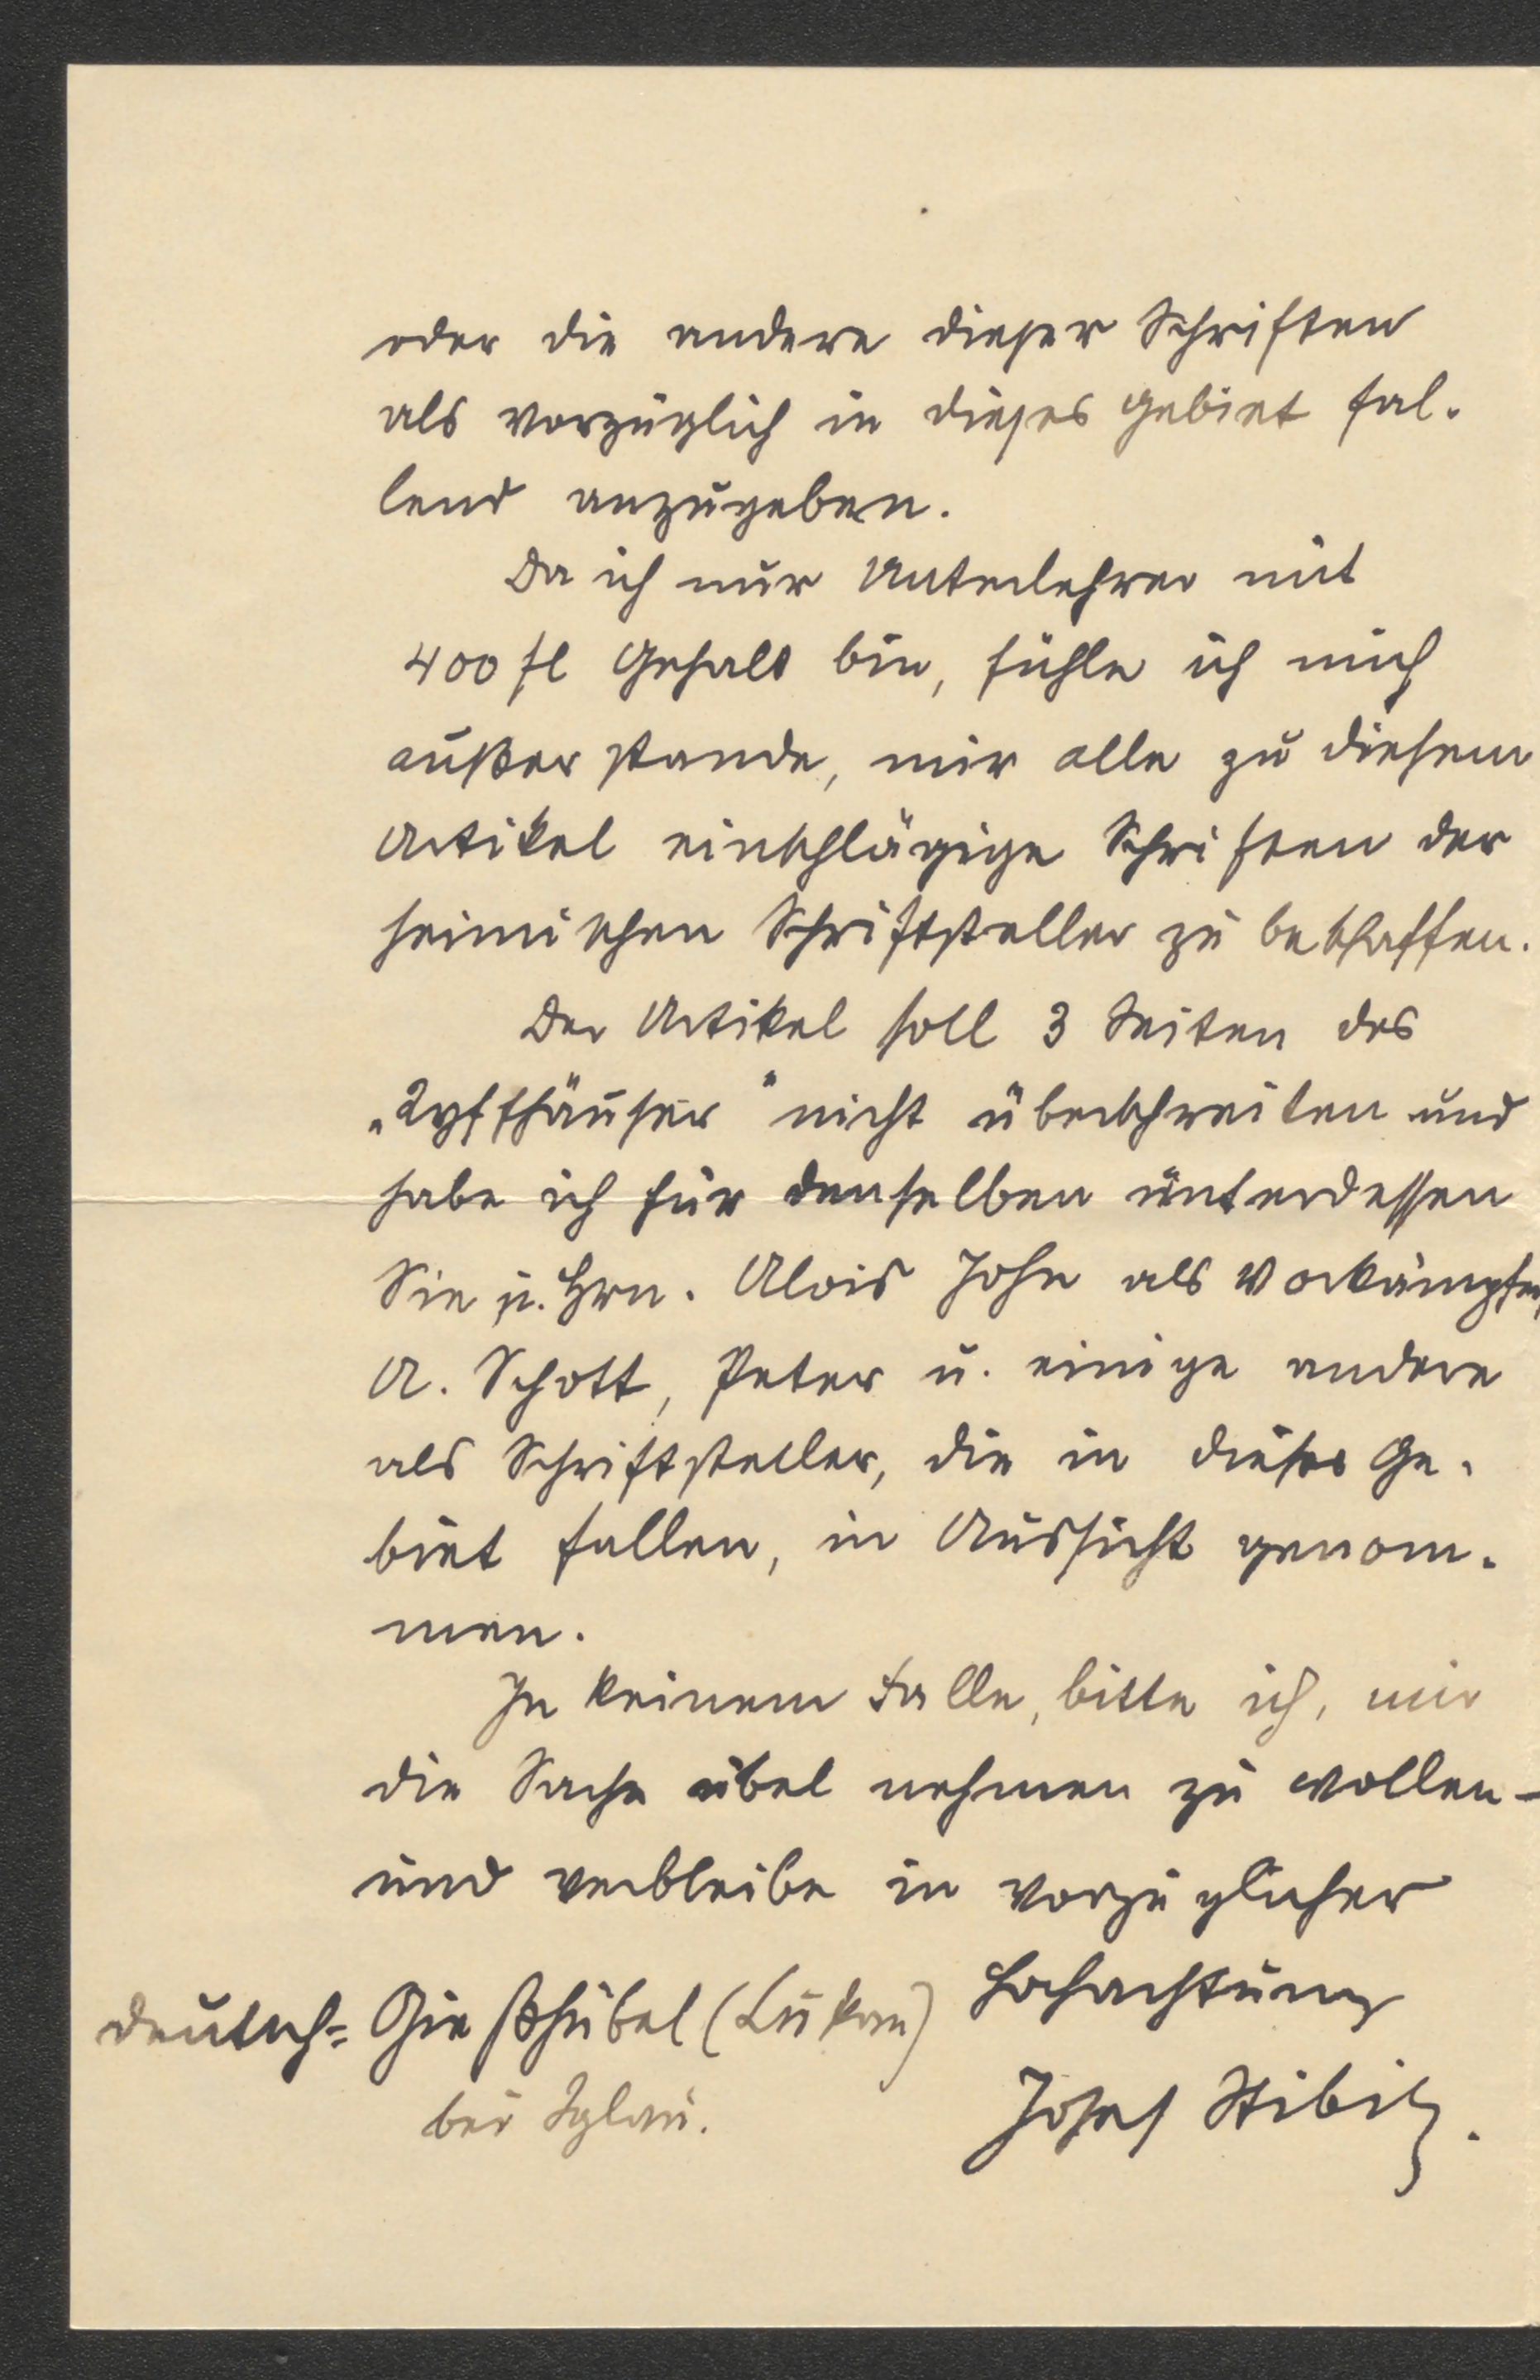 oder die andere dieser Schriften
als vorzüglich in dieses Gebiet fal-
lend anzugeben.
Da ich nur Unterlehrer mit
400 fl Gehalt bin, fühle ich mich
außer stande, mir alle zu diesem
Artikel einschlägige Schriften der
heimischen Schriftsteller zu beschaffen.
Der Artikel soll 3 Seiten des
„Kyffhäuser" nicht überschreiten und
habe ich für denselben unterdessen
Sie u. Hrn. Alois John als Vorkämpfer,
A. Schott, Peter u. einige andere
als Schriftsteller, die in dieses Ge-
biet fallen, in Aussicht genom-
men.
In keinem Falle, bitte ich, mir
die Sache übel nehmen zu wollen –
und verbleibe in vorzüglicher
Hochachtung
Deutsch-Gießhübel (Lukau)
bei Iglau.
Josef Stibitz.